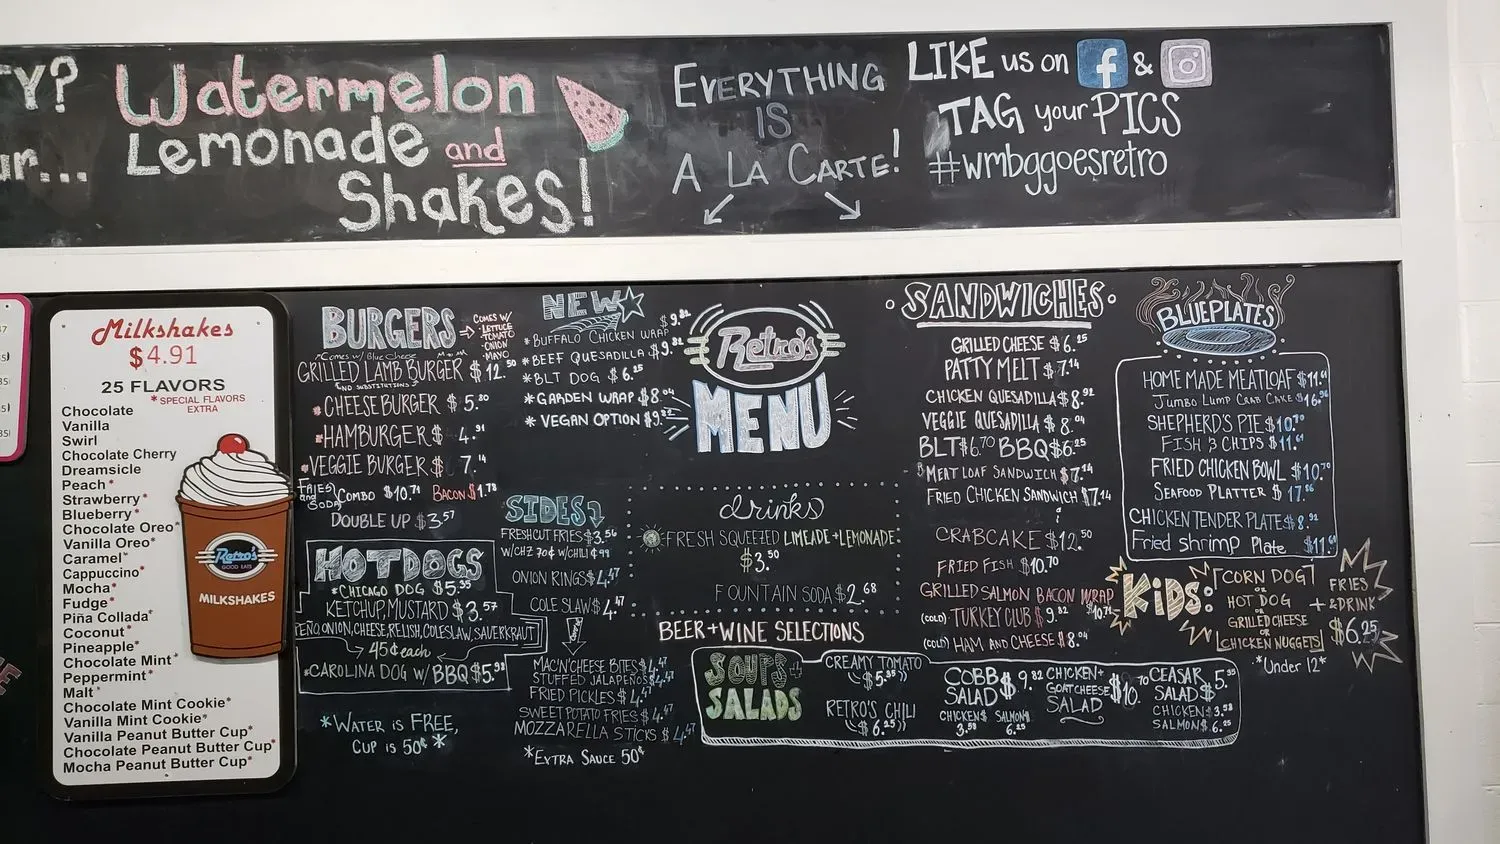 Y?
ur...
Watermelon
Lemonade and
Shakes!
EVERYTHING
IS
A LA CARTE!
LIKE us on f &
TAG your PICS
#wmbggoesretro
Milkshakes
$4.91
25 FLAVORS
*SPECIAL FLAVORS
EXTRA
Chocolate
Vanilla
Swirl
Chocolate Cherry
Dreamsicle
Peach*
Strawberry*
Blueberry*
Chocolate Oreo*
Vanilla Oreo*
Caramel*
Cappuccino*
Mocha*
Fudge*
Piña Collada*
Coconut*
Pineapple*
Chocolate Mint*
Peppermint*
Malt*
Chocolate Mint Cookie*
Vanilla Mint Cookie*
Vanilla Peanut Butter Cup*
Chocolate Peanut Butter Cup*
Mocha Peanut Butter Cup*
Retro's
GOOD EATS
MILKSHAKES
BURGERS
COMES W/
LETTUCE
TOMATO
ONION
MAYO
*Comes w/ Blue Cheese
GRILLED LAMB BURGER $12.50
(NO SUBSTITUTIONS)
*CHEESEBURGER $5.80
*HAMBURGER $4.91
*VEGGIE BURGER $7.14
FRIES and SODA COMBO $10.71 BACON $1.78
DOUBLE UP $3.57
HOTDOGS
*CHICAGO DOG $5.35
KETCHUP, MUSTARD $3.57
ONION, CHEESE, RELISH, COLESLAW, SAUERKRAUT
45¢ each
*CAROLINA DOG W/ BBQ $5.98
*WATER IS FREE,
CUP IS 50¢*
NEW
*BUFFALO CHICKEN WRAP $9.82
*BEEF QUESADILLA $9.82
*BLT DOG $6.25
*GARDEN WRAP $8.04
*VEGAN OPTION $9.82
SIDES
FRESH CUT FRIES $3.56
W/CHZ 70¢ W/CHILI ¢99
ONION RINGS $4.47
COLE SLAW $4.47
MAC'N'CHEESE BITES $4.47
STUFFED JALAPEÑOS $4.47
FRIED PICKLES $4.47
SWEET POTATO FRIES $4.47
MOZZARELLA STICKS $4.47
*EXTRA SAUCE 50¢
Retro's
MENU
drinks
FRESH SQUEEZED LIMEADE + LEMONADE
$3.50
FOUNTAIN SODA $2.68
BEER + WINE SELECTIONS
SOUPS +
SALADS
CREAMY TOMATO
$5.35
RETRO'S CHILI
$6.25
COBB
SALAD $9.82
CHICKEN $3.58 SALMON $6.25
CHICKEN +
GOAT CHEESE
SALAD $10.70
CEASAR
SALAD $5.35
CHICKEN $3.58
SALMON $6.25
SANDWICHES
GRILLED CHEESE $6.25
PATTY MELT $7.14
CHICKEN QUESADILLA $8.92
VEGGIE QUESADILLA $8.04
BLT $6.70 BBQ $6.25
MEAT LOAF SANDWICH $7.14
FRIED CHICKEN SANDWICH $7.14
CRABCAKE $12.50
FRIED FISH $10.70
GRILLED SALMON BACON WRAP
$10.71
(COLD) TURKEY CLUB $9.82
(COLD) HAM AND CHEESE $8.04
BLUEPLATES
HOME MADE MEATLOAF $11.61
JUMBO LUMP CRAB CAKE $16.96
SHEPHERD'S PIE $10.70
FISH & CHIPS $11.61
FRIED CHICKEN BOWL $10.70
SEAFOOD PLATTER $17.86
CHICKEN TENDER PLATE $8.92
Fried shrimp Plate $11.61
KIDS:
CORN DOG
OR
HOT DOG
OR
GRILLED CHEESE
OR
CHICKEN NUGGETS
+ FRIES
& DRINK
$6.25
*Under 12*